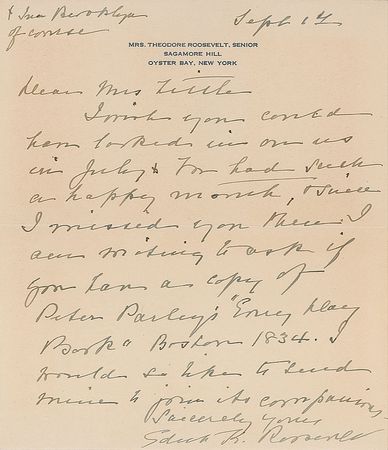 & Ina Brooklyn
of course
Sept 17
MRS. THEODORE ROOSEVELT, SENIOR
SAGAMORE HILL
OYSTER BAY, NEW YORK
Dear Mrs Little
I wish you could
have looked in on us
in July & had such
a happy month, & since
I missed you then I
am writing to ask if
you have a copy of
Peter Parley's "Every Day
Book" Boston 1834. I
would so like to send
mine to join its companions.
Sincerely yours
Edith K. Roosevelt